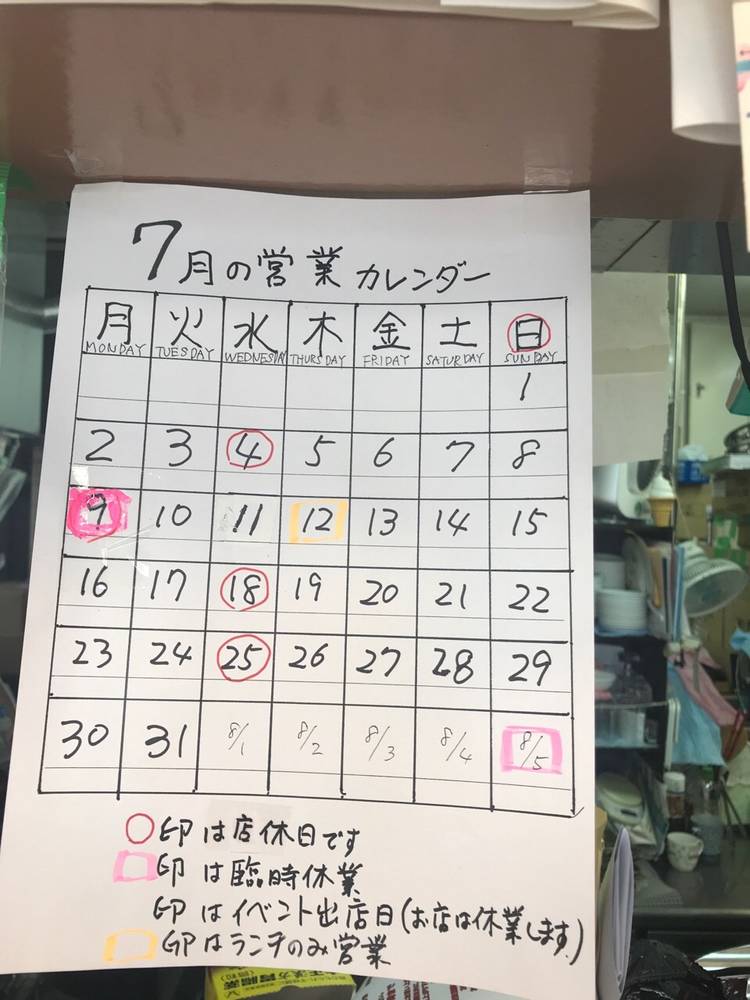 7月の営業カレンダー
月 火 水 木 金 土 日
MONDAY TUESDAY WEDNESDAY THURSDAY FRIDAY SATURDAY SUNDAY
1
2 3 4 5 6 7 8
9 10 11 12 13 14 15
16 17 18 19 20 21 22
23 24 25 26 27 28 29
30 31 8/1 8/2 8/3 8/4 8/5
印は店休日です
印は臨時休業
印はイベント出店日(お店は休業します。)
印はランチのみ営業